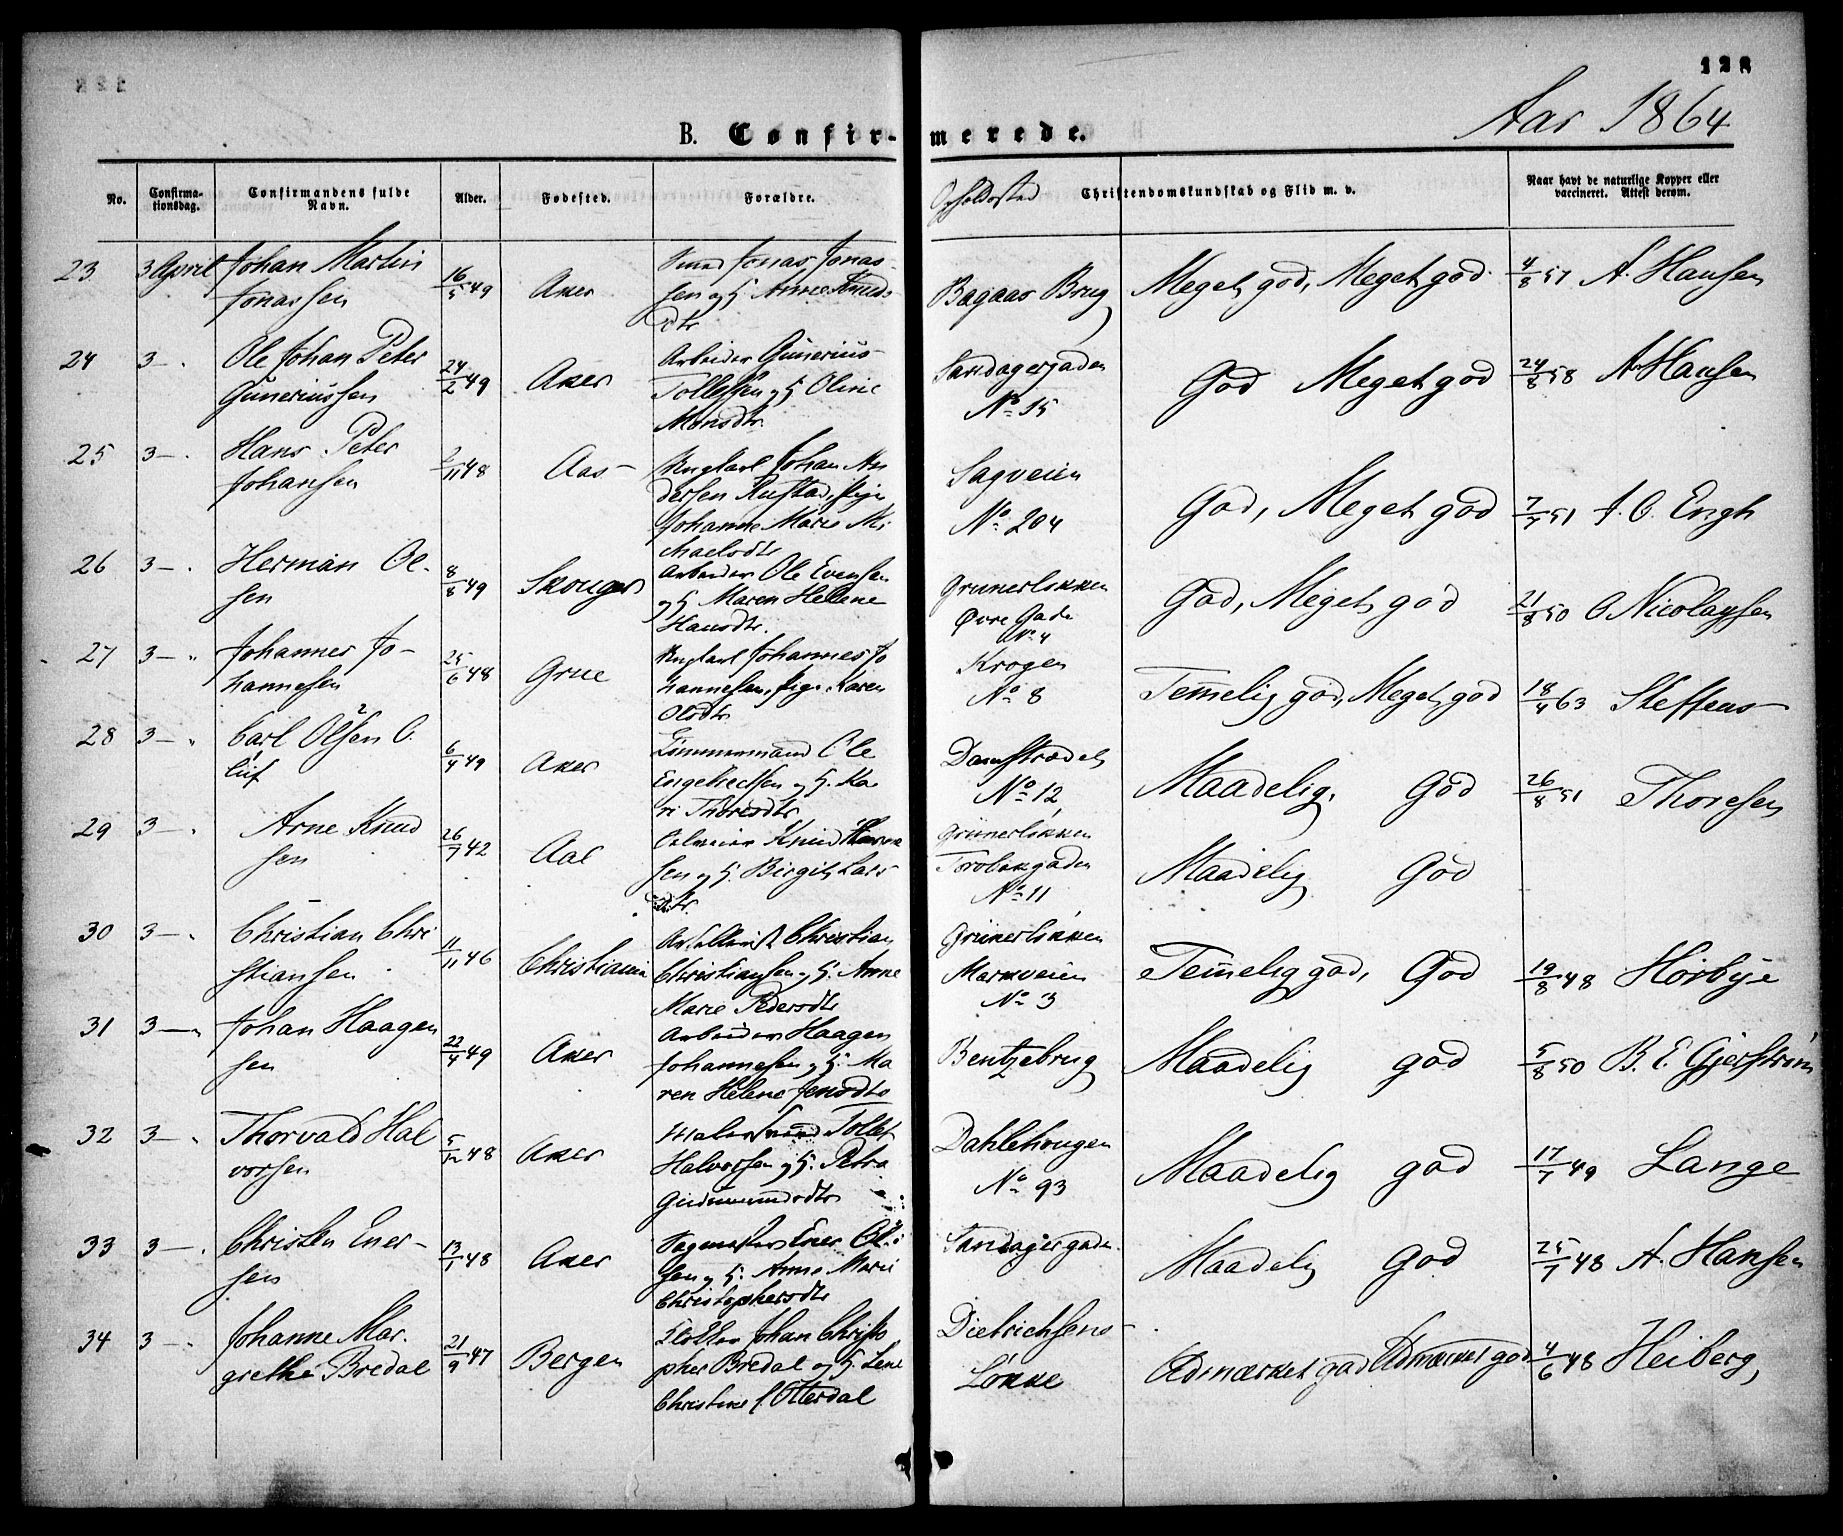 128
Aar 1864
B. Confirmerede.
No. Confirmationsdag. Confirmandens fulde Navn. Alder. Fødested. Forældre. Opholdssted Christendomskundskab og Flid m. v. Naar havt de naturlige Kopper eller vaccineret. Attest derom.
23 3 April Johan Martin 16/5 49 Aker Smed Jonas Jonas-
Jonassen sen og H. Anne Knuds-
dtr Bagaas Brug Meget god, Meget god 4/8 51 A. Hansen
24 3 — Ole Johan Peter 24/2 49 Aker Arbeider Gunerius
Guneriussen Tollefsen og H. Oline
Monsdtr. Sandagergaden
No 15 God Meget god 24/8 58 A. Hansen
25 3 — Hans Peter 2/11 48 Aas Ungkarl Johan An
Johansen dersen Rustad, Pige
Johanne Marie Mi
chaelsdtr Sagveien
No 204 God, Meget god 7/7 51 J. O. Engh
26 3 — Herman Ol- 8/8 49 Skouger Arbeider Ole Evensen
sen og H. Maren Helene
Hansdtr. Grünerløkken
Øvre Gade
No 4 God, Meget god 21/8 50 O Nicolaysen
27 3 — Johannes Jo- 25/6 48 Grue Ungkarl Johannes Jo
hannesen hannesen, Pige Karen
Olsdtr Krogen
No 8 Temmelig god, Meget god 18/4 63 Steffens
28 3 — Carl Olsen O. 6/4 49 Aker Tømmermand Ole
luf Engebretsen og H. Ka
ri Thoresdtr Damstrædet
No 12 Maadelig, God 26/8 51 Thoresen
29 3 — Arne Knud 26/7 42 Aal Knud
sen sen og H. Birgit Lars
dtr. Grünerløkken
Torvbakgaden
No 11 Maadelig God
30 3 — Christian Chri 11/11 46 Christiania Christian
stiansen Christiansen og H. Anne
Marie Pedersdtr Grünerløkken
Markveien
No 3 Temmelig god, God 19/8 48 Hørbye
31 3 — Johan Haagen 22/4 49 Aker Arbeider Haagen
sen Johannesen og H. Ma
ren Helene Jensdtr Bentzebrug Maadelig god 5/8 50 B. E. Gjerstrøm
32 3 — Thorvald Hal 5/12 48 Aker Tollef
vorsen Halvorsen og H. Petra
Gudmundsdtr Dahlehougen
No 93 Maadelig god 17/7 49 Lange
33 3 — Christen Ener- 13/1 48 Aker Sagmester Ener Ol-
sen sen og H. Anne Marie
Christophersdtr Sandagergaden Maadelig God 25/7 48 A. Hansen
34 3 — Johanne Mar- 21/9 47 Bergen Johan Christo
grethe Bredal pher Bredal og H. Lene
Christine f. Otterdal Dietrichsens-
Løkke Udmærket god Udmærket god 4/6 48 Heiberg,